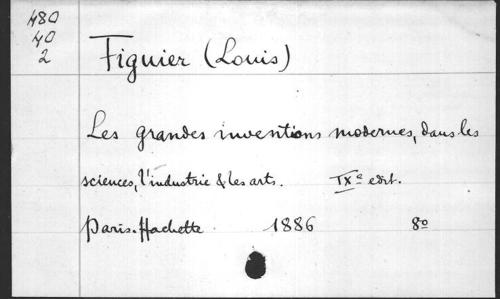 480
40
2
Figuier (Louis)
Les grandes inventions modernes, dans les
sciences, l'industrie & les arts. IXe edit.
Paris. Hachette 1886 8o